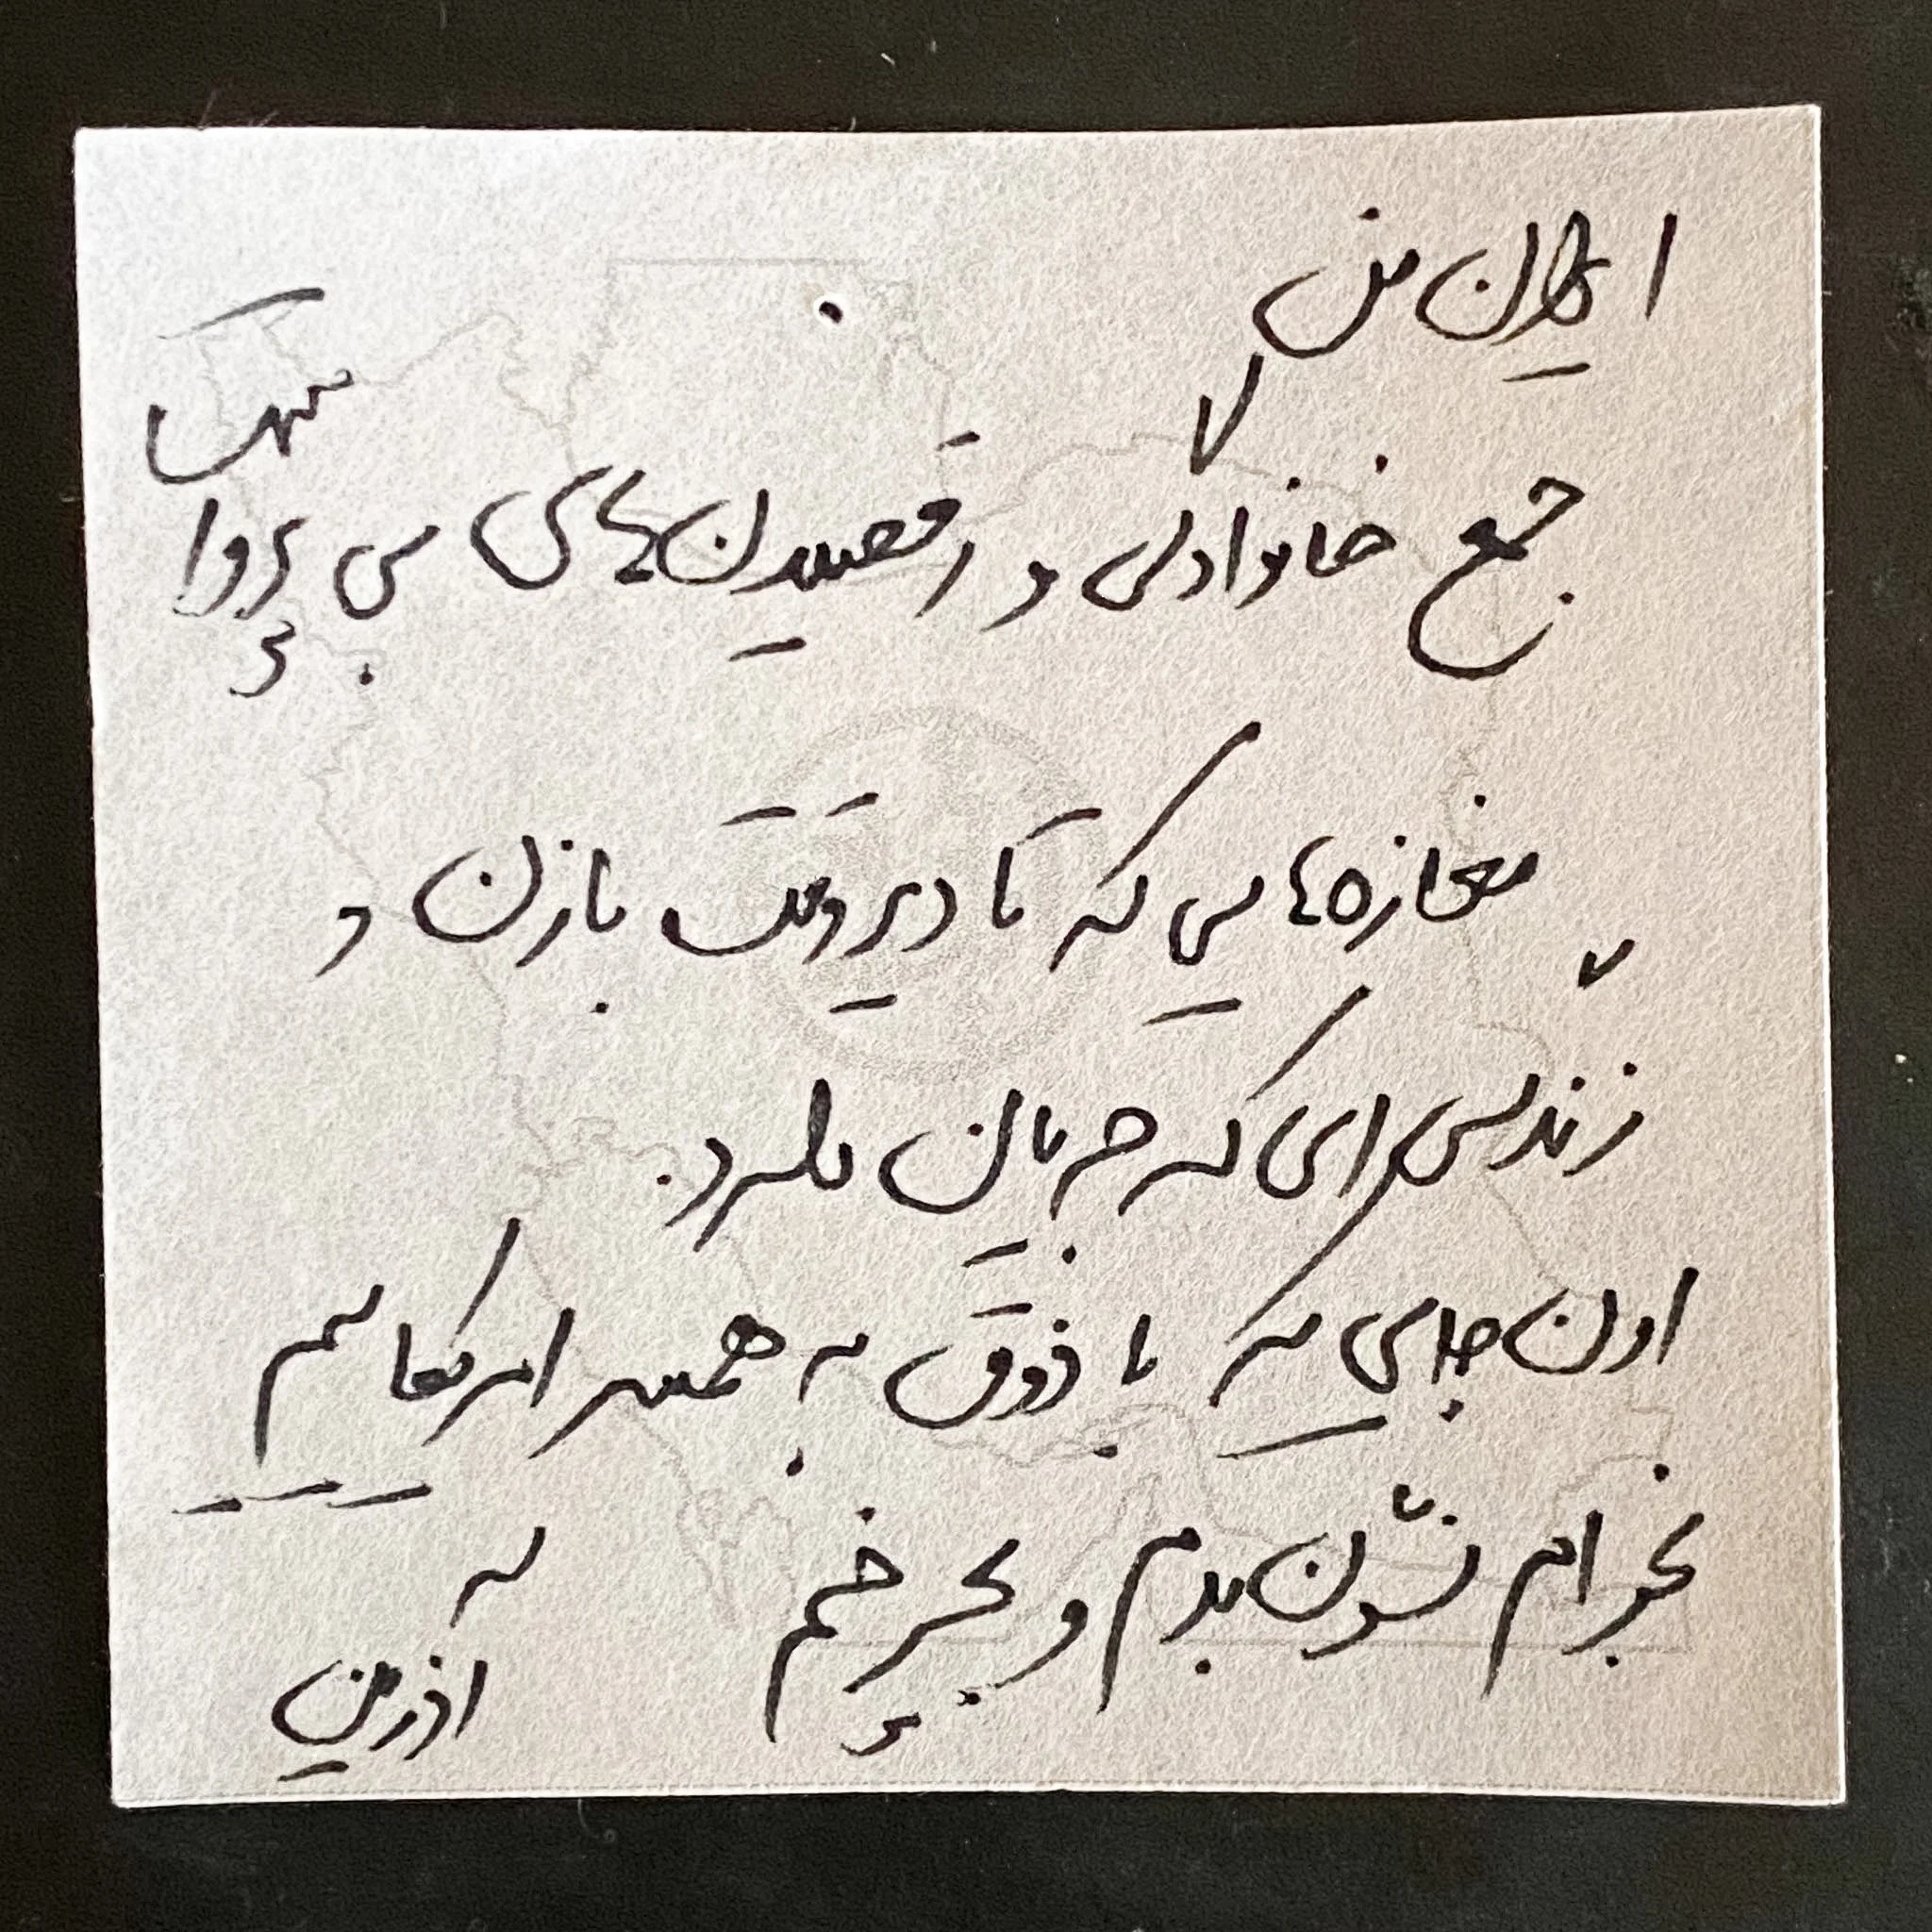 ایران من
جمع خانوادگی و رقصیدن‌های بی پروا
مغازه‌هایی که تا دیروقت بازن و
زندگی ای که جریان
اون جایی که با ذوق به همسر امریکاییم
بخوام نشون بدم و بچرخم
اذرین